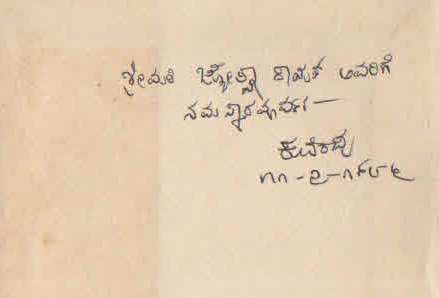 ಶ್ರೀಮತಿ ಜ್ಯೋತ್ಸ್ನಾ ಕಾಮತ್ ಅವರಿಗೆ
ನಮಸ್ಕಾರಪೂರ್ವಕ —
ಕುವೆಂಪು
೧೧-೨-೧೯೮೬